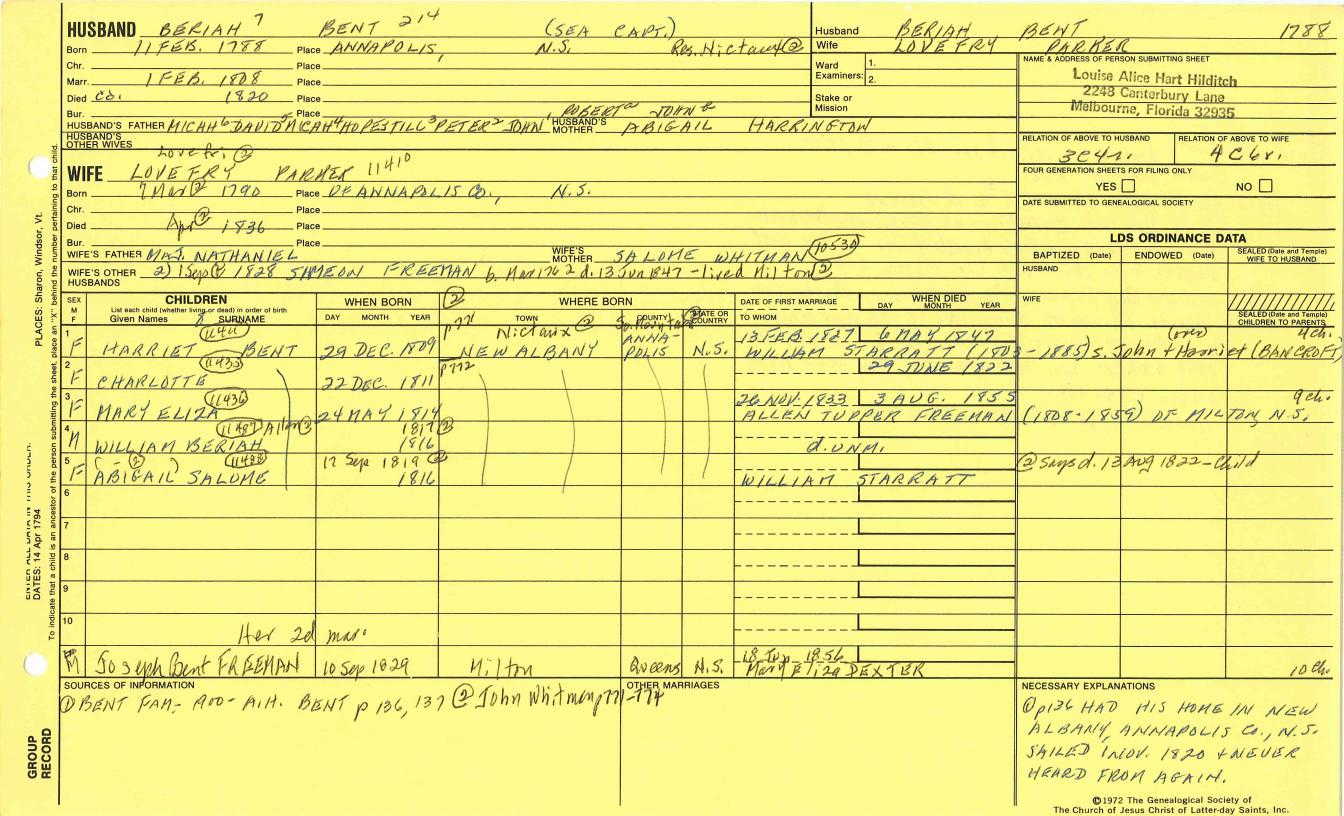 HUSBAND BERIAH 7 BENT 214 (SEA CAPT.)
Born 11 FEB. 1788 Place ANNAPOLIS, N.S. Res. Nictaux ②
Chr. Place
Marr. 1 FEB. 1808 Place
Died ca. 1820 Place
Bur. Place
ROBERT JOHN
HUSBAND'S FATHER MICAH 6 DAVID 5 MICAH 4 HOPESTILL 3 PETER 2 JOHN 1 HUSBAND'S MOTHER ABIGAIL HARRINGTON
HUSBAND'S OTHER WIVES
Lovefri ②
WIFE LOVE FRY PARKER 11410
Born 7 Mar ② 1790 Place OF ANNAPOLIS CO., N.S.
Chr. Place
Died Apr ② 1836 Place
Bur. Place
WIFE'S FATHER MAJ. NATHANIEL WIFE'S MOTHER SALOME WHITMAN 10530
WIFE'S OTHER HUSBANDS 2) 1 Sep ② 1828 SIMEON FREEMAN b. Mar 1762 d. 13 Jun 1847 - lived Milton ②
Husband BERIAH BENT 1788
Wife LOVE FRY PARKER
Ward Examiners: 1.
2.
Stake or Mission
NAME & ADDRESS OF PERSON SUBMITTING SHEET
Louise Alice Hart Hilditch
2248 Canterbury Lane
Melbourne, Florida 32935
RELATION OF ABOVE TO HUSBAND RELATION OF ABOVE TO WIFE
3C4r. 4C6r.
FOUR GENERATION SHEETS FOR FILING ONLY
YES NO
DATE SUBMITTED TO GENEALOGICAL SOCIETY
LDS ORDINANCE DATA
BAPTIZED (Date) ENDOWED (Date) SEALED (Date and Temple) WIFE TO HUSBAND
HUSBAND
WIFE
SEALED (Date and Temple) CHILDREN TO PARENTS
SEX M F CHILDREN
List each child (whether living or dead) in order of birth
Given Names SURNAME
WHEN BORN DAY MONTH YEAR
② WHERE BORN TOWN COUNTY STATE OR COUNTRY
DATE OF FIRST MARRIAGE TO WHOM
WHEN DIED DAY MONTH YEAR
1 p 771 Nictaux ② 13 FEB. 1827 6 MAY 1847 (over) 4 ch.
F HARRIET BENT 29 DEC. 1809 NEW ALBANY ANNAPOLIS N.S. WILLIAM STARRATT (1803-1885) s. John + Harriet (BANCROFT)
2 11435 p 772 29 JUNE 1822
F CHARLOTTE 22 DEC. 1811
3 11436 26 NOV. 1833 3 AUG. 1855 9 ch.
F MARY ELIZA 24 MAY 1814 ALLEN TUPPER FREEMAN (1808-1859) OF MILTON, N.S.
4 11437 Allen ② 1817 ②
M WILLIAM BERIAH 1816 d. UNM.
5 (- ②) 11438 17 Sep 1819 ② ② Says d. 13 Aug 1822 - Child
F ABIGAIL SALOME 1816 WILLIAM STARRATT
6
7
8
9
10
Her 2d mar.
M Joseph Bent FREEMAN 10 Sep 1829 Milton Queens N.S. 18 1856 Mary Eliza DEXTER 10 ch.
SOURCES OF INFORMATION
① BENT FAM- 1900- A.H. BENT p 136, 137 ② John Whitman p 771-774
OTHER MARRIAGES
NECESSARY EXPLANATIONS
① p136 HAD HIS HOME IN NEW
ALBANY, ANNAPOLIS CO., N.S.
SAILED 1 NOV. 1820 + NEVER
HEARD FROM AGAIN.
©1972 The Genealogical Society of
The Church of Jesus Christ of Latter-day Saints, Inc.
PLACES: Sharon, Windsor, Vt.
ENTER ALL DATA IN THIS ORDER:
DATES: 14 Apr 1794
To indicate that a child is an ancestor of the person submitting the sheet, place an "X" behind the number pertaining to that child.
GROUP RECORD